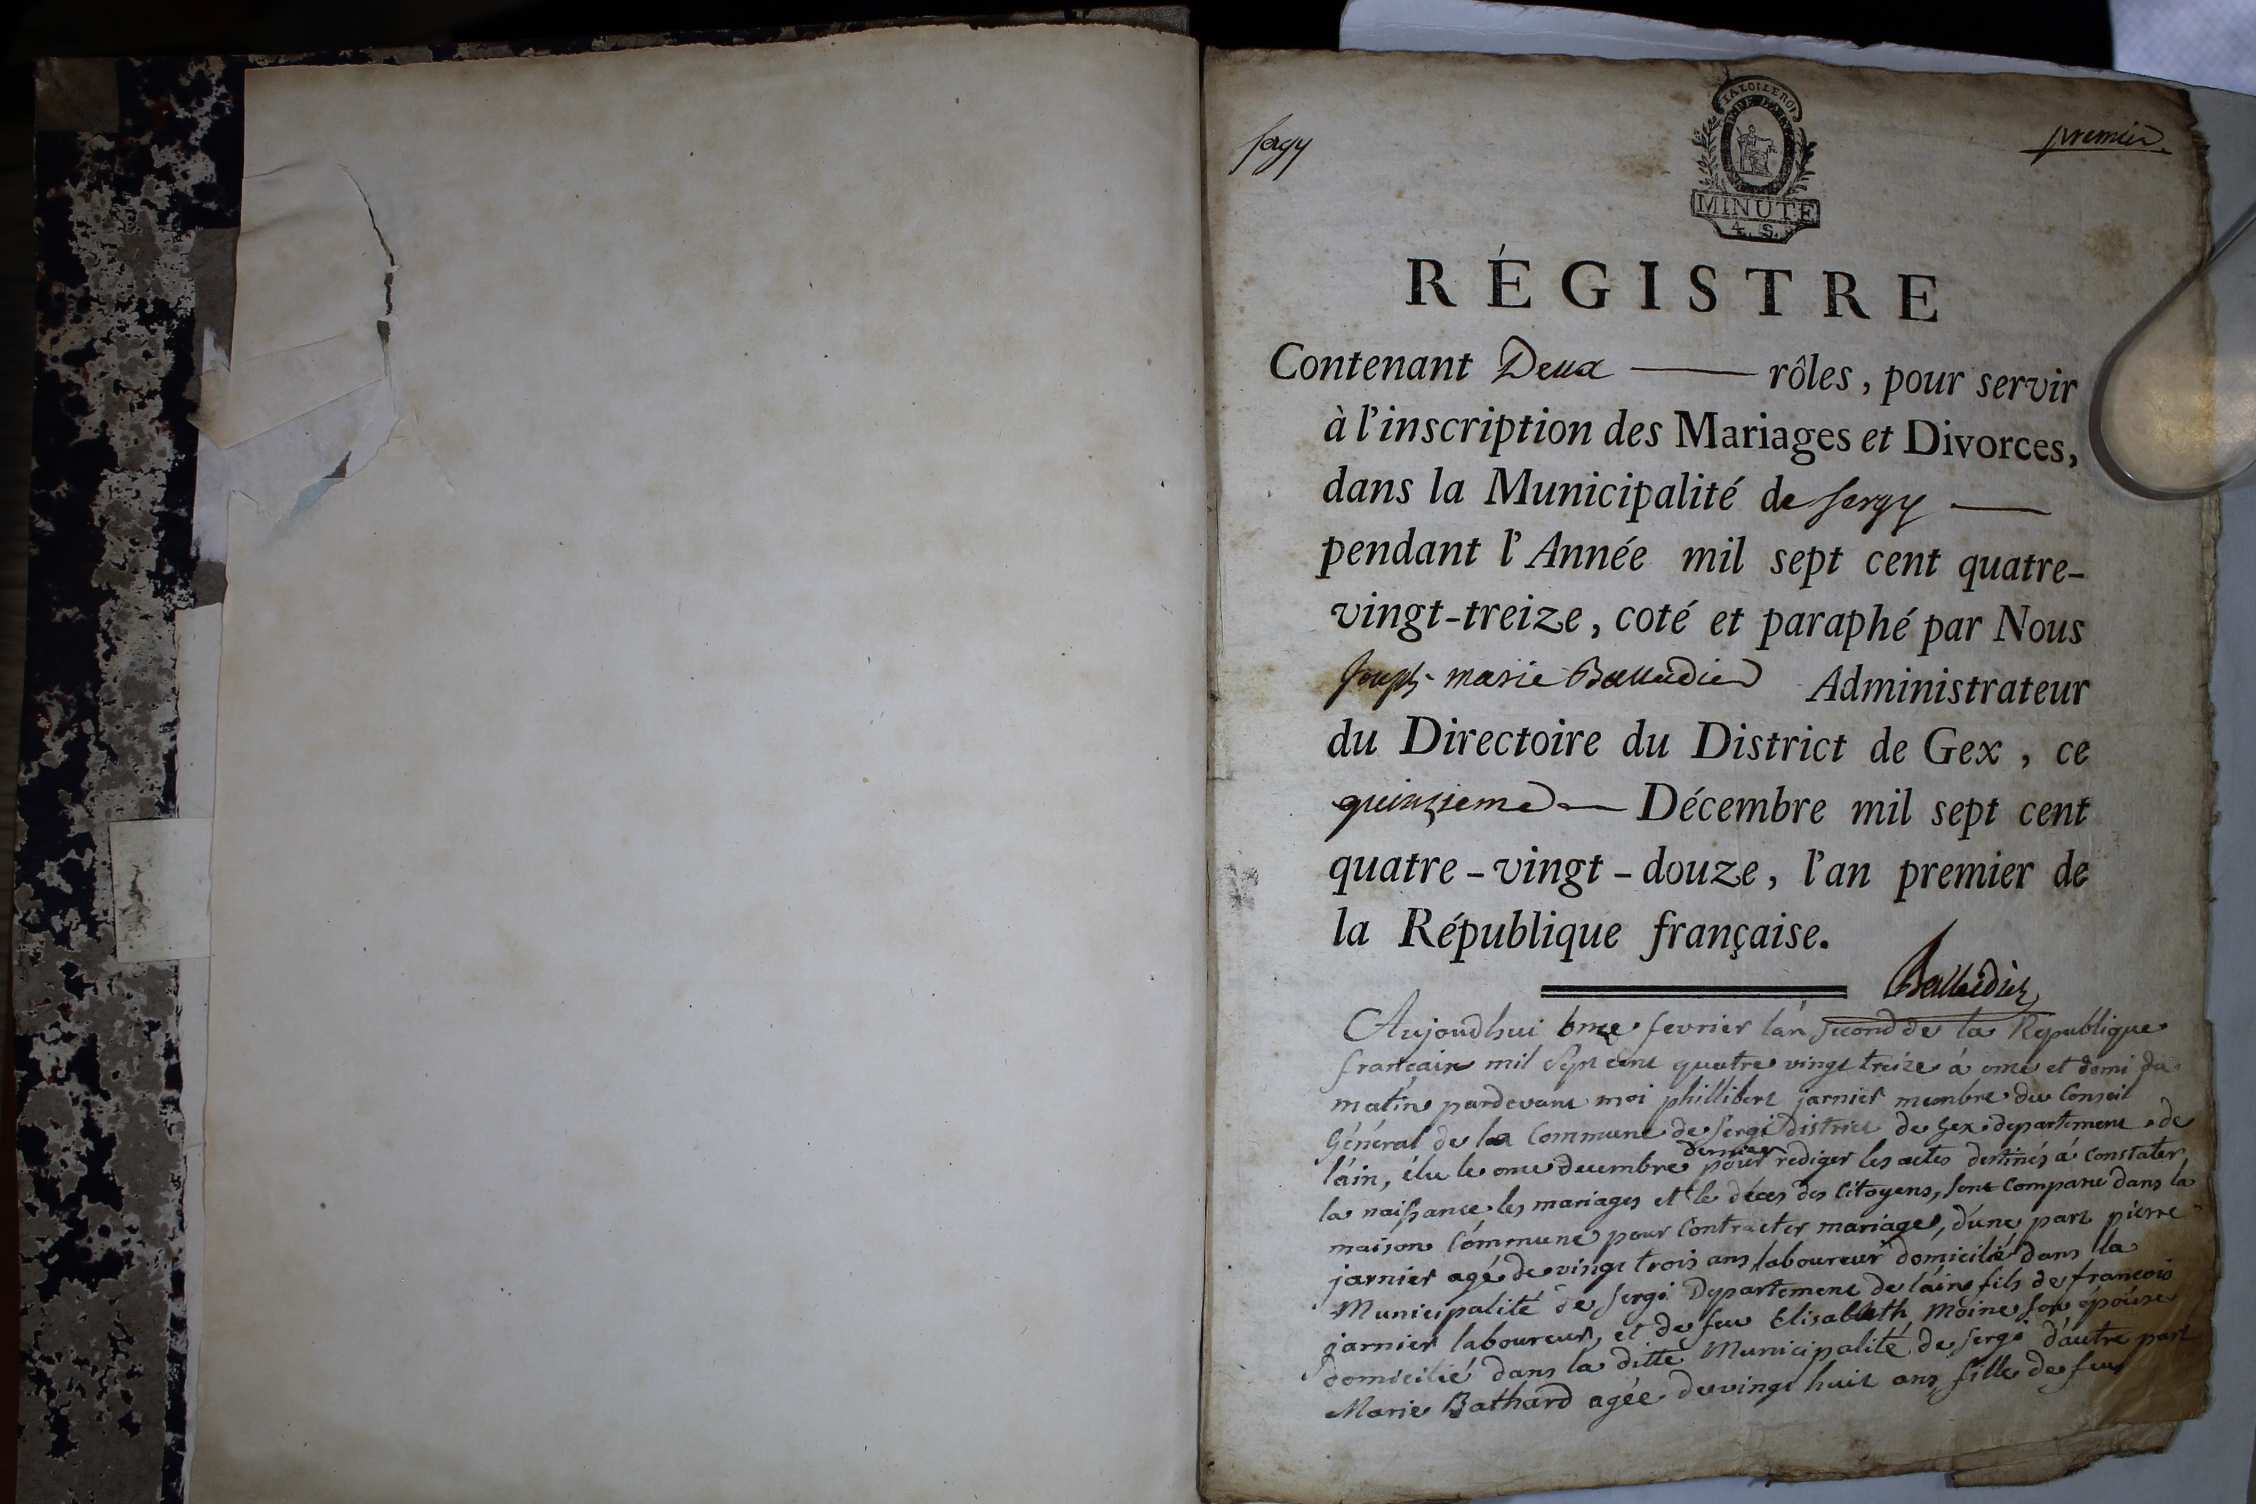 Sergy
premier.
LA LOI LE ROI
MINUTE
4. S.
RÉGISTRE
Contenant Deux rôles, pour servir
à l'inscription des Mariages et Divorces,
dans la Municipalité de Sergy
pendant l'Année mil sept cent quatre-
vingt-treize, coté et paraphé par Nous
Joseph marie Balleidier Administrateur
du Directoire du District de Gex, ce
quinzieme Décembre mil sept cent
quatre-vingt-douze, l'an premier de
la République française.
Balleidier
Aujoudhui fevrier lan second de la Republique
francaise mil Sept cent quatre vingt treize á onze et demi du
matin pardevant moi phillibert jarnier membre du Conseil
Général de la Commune de Sergi district de Gex departement de
l'áin, élu le onze decembre dernier pour rediger les actes destinés á Constater
la naissance les mariages et le déces des Citoyens, sont Comparu dans la
maison Commune pour Contracter mariage, d'une part pierre
jarnier agé de vingt trois ans laboureur domicilié dans la
Municipalité de Sergi Departement de láin fils de francois
jarnier laboureur, et de feu Elisabeth Moine son épouse
domicilié dans la ditte Municipalité de Sergi d'autre part
Marie Bathard agée de vingt huit ans fille de feu